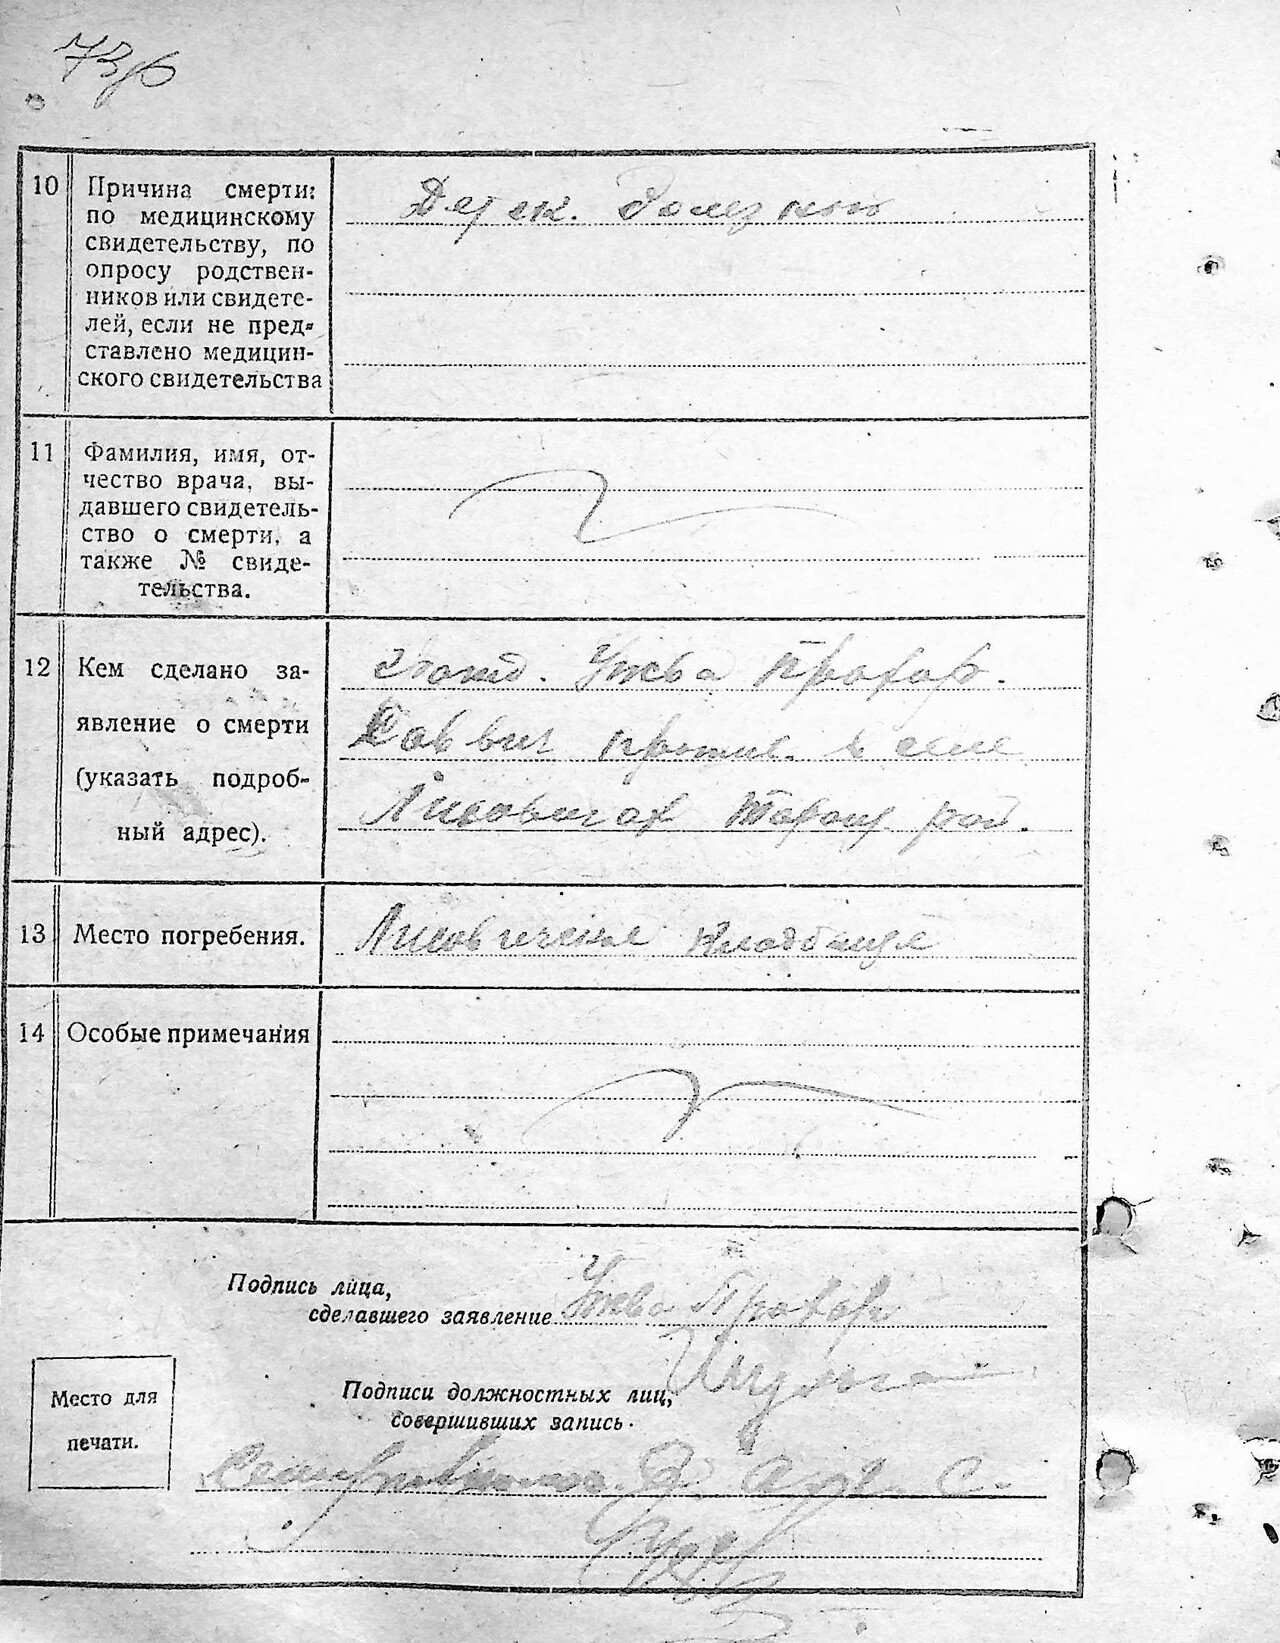 10
Причина смерти:
по медицинскому
свидетельству, по
опросу родствен-
ников или свидете-
лей, если не пред-
ставлено медицин-
ского свидетельства
Детск. болезнью
11
Фамилия, имя, от-
чество врача, вы-
давшего свидетель-
ство о смерти, а
также № свиде-
тельства.
12
Кем сделано за-
явление о смерти
(указать подроб-
ный адрес).
Ужва Прохор.
Саввич прожив. в селе
Лисовичах Таращ. рай.
13
Место погребения.
Лисовичское кладбище
14
Особые примечания
Подпись лица,
сделавшего заявление
Ужва Прохор
Подписи должностных лиц,
совершивших запись.
Место для
печати.